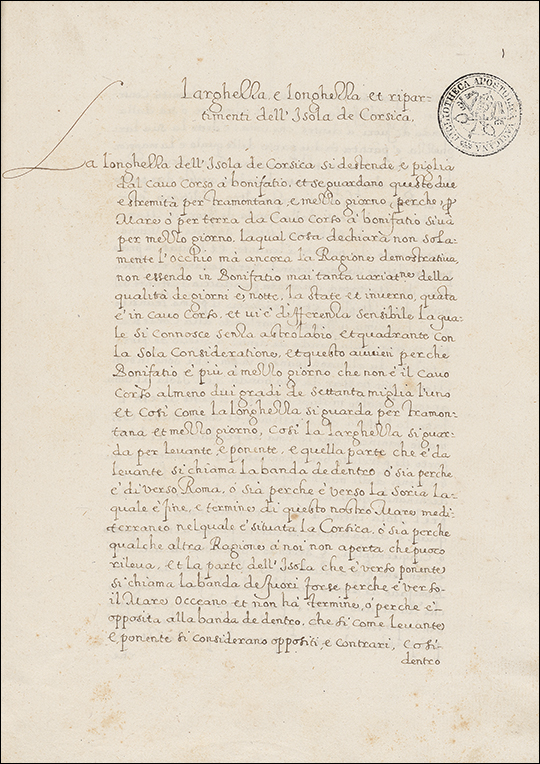 1
BIBLIOTHECA APOSTOLICA VATICANA
Larghezza e longhezza et ripar-
timenti dell' Isola de Corsica.
La longhezza dell' Isola de Corsica si destende e piglia
dal Cauo Corso à bonifatio, et se guardano queste due
estremità per tramontana, e mezzo giorno, perche, ꝑ
Mare ò per terra da Cauo Corso à bonifatio si uà
per mezzo giorno, la qual cosa dechiarà non sola-
mente l'occhio mà ancora la Ragione demostratiua,
non essendo in Bonifatio mai tanta uariatne della
qualità de giorni e notte, la state et inuerno, quāta
è in Cauo Corso, et ui è differenza sensibile la qua-
le si Connosce senza astrolabio, et quadrante con
la sola Consideratione, et questo auuieni perche
Bonifatio è più à mezzo giorno che non è il Cauo
Corso almeno dui gradi de settanta miglia l'uno
et Cosi come la longhezza si guarda per tramon-
tana et mezzo giorno, Cosi la larghezza si guar-
da per leuante, e ponente, e quella parte che è da
leuante si chiama la banda de dentro ò sia perche
è diuerso Roma, ò sia perche è uerso la Soria la-
quale è fine, e termine di questo nostro Mare medi-
terraneo nel quale è situata la Corsica, ò sia perche
qualche altra Ragione à noi non aperta che puoco
rileua, et la parte dell' Isola che è uerso ponente
si chiama la banda de fuori forse perche è uerso
il Mare Occeano et non hà termine, ò perche è
opposita alla banda de dentro, che si come leuante
e ponente si considerano oppositi, e contrari, Cosi
dentro